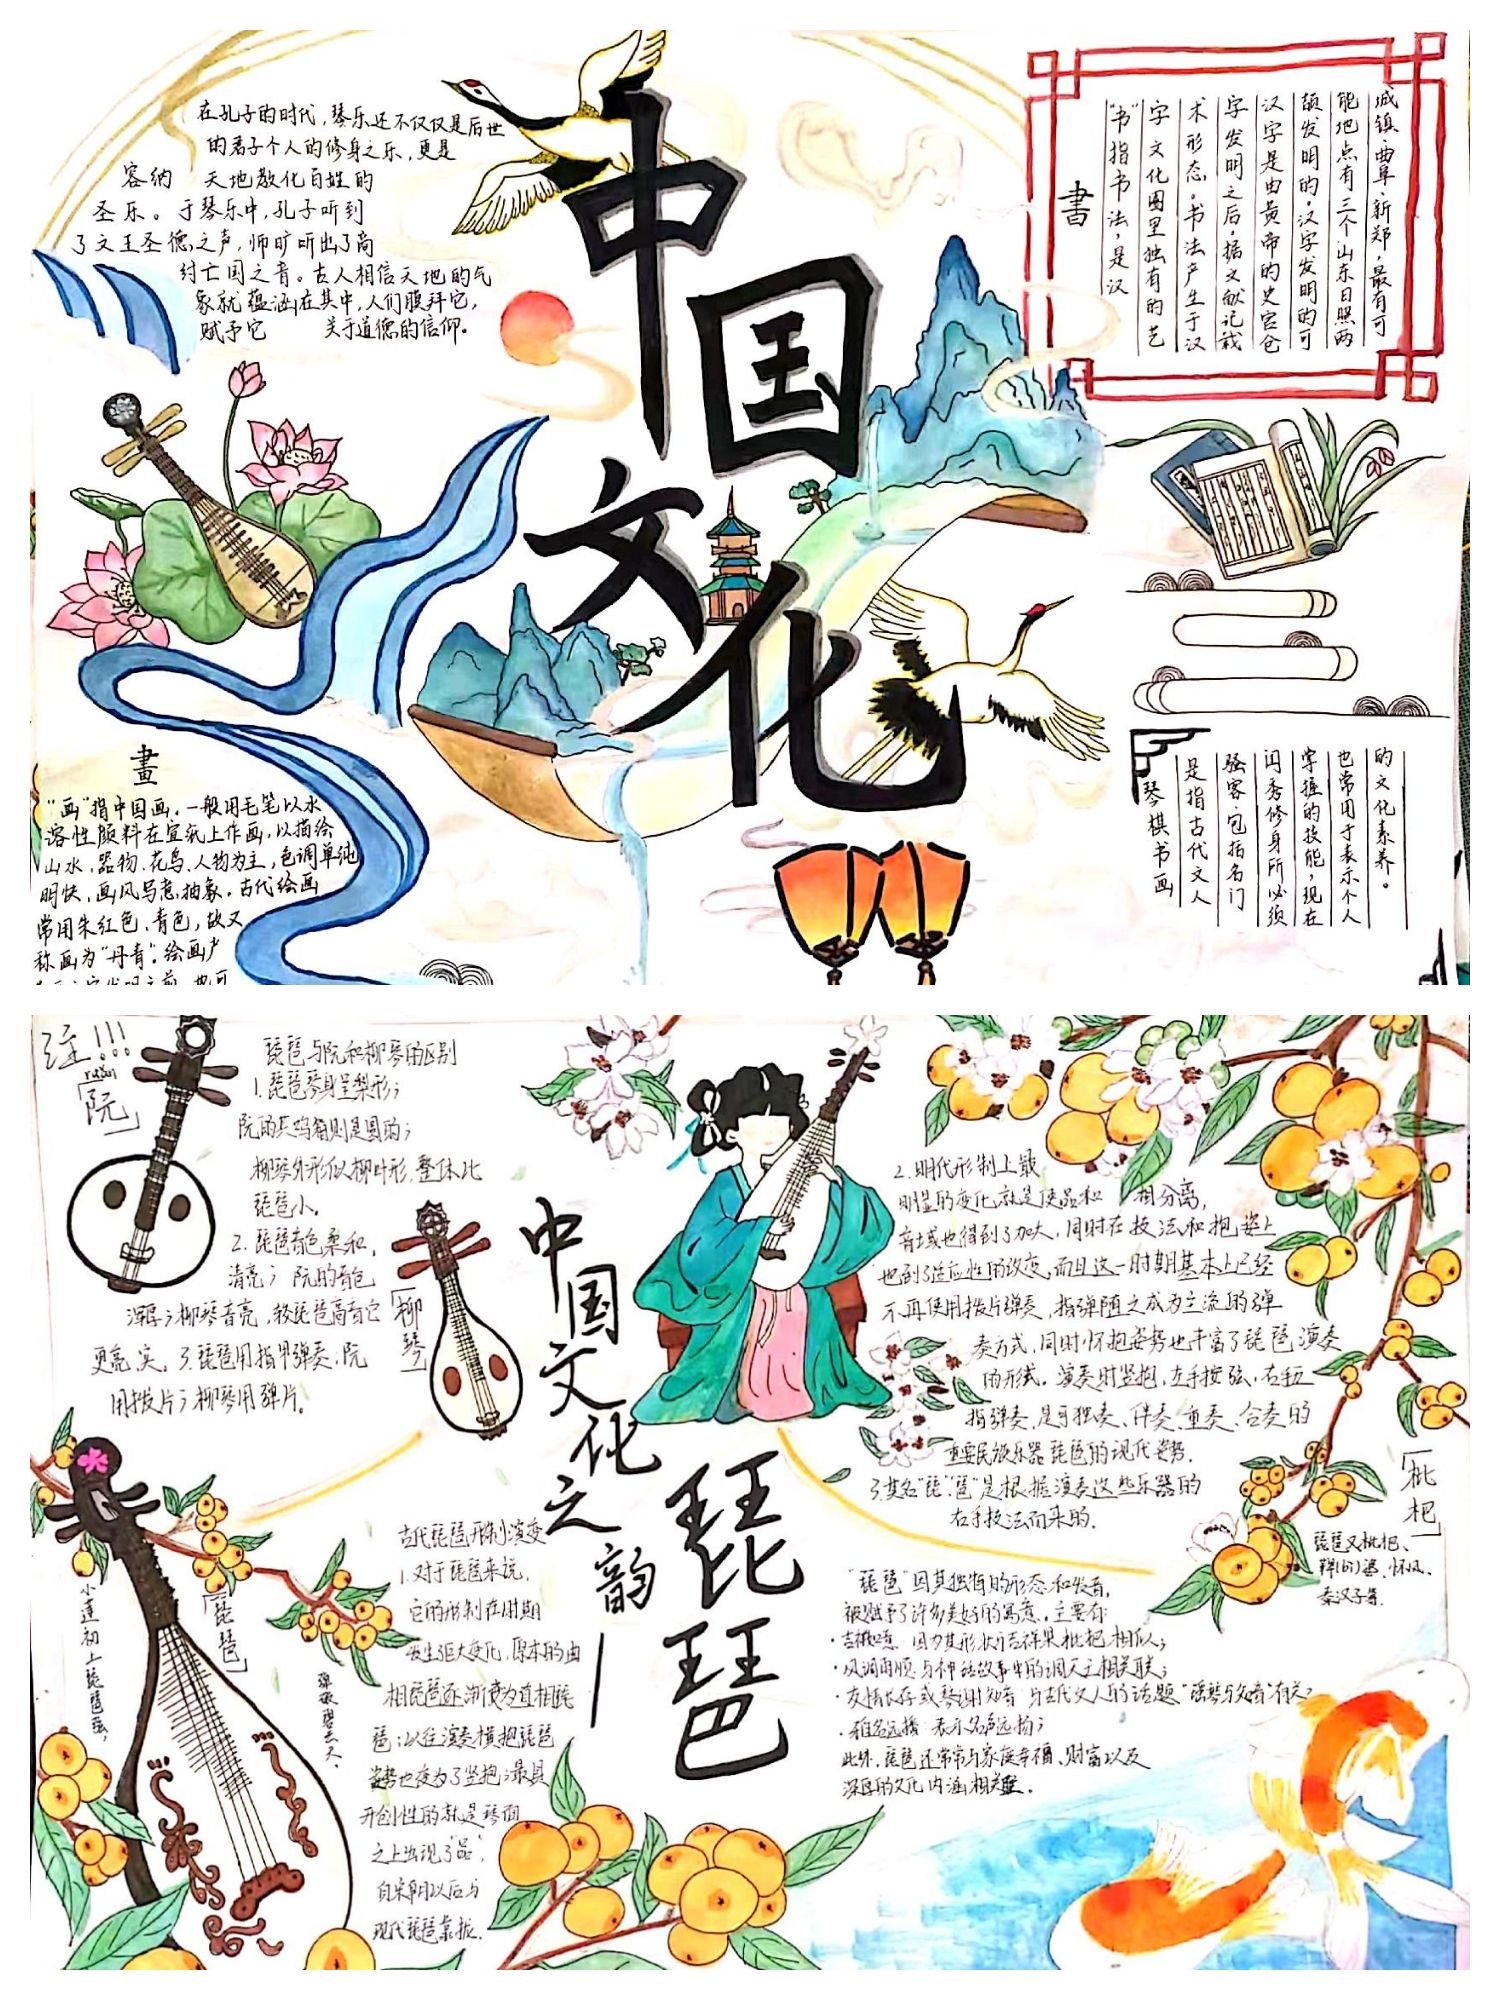 在孔子的时代，琴乐还不仅仅是后世
的君子个人的修身之乐，更是
容纳 天地教化百姓的
圣乐。于琴乐中，孔子听到
了文王圣德之声，师旷听出了商
纣亡国之音。古人相信天地的气
象就蕴涵在其中，人们膜拜它，
赋予它 关于道德的信仰。
中
国
文
化
書
"书"指书法，是汉
字文化圈里独有的艺
术形态。书法产生于汉
字发明之后。据文献记载
汉字是由黄帝的史官仓
颉发明的。汉字发明的可
能地点有三个山东日照两
城镇、曲阜、新郑，最有可
畫
"画"指中国画。一般用毛笔以水
溶性颜料在宣纸上作画，以描绘
山水、器物、花鸟、人物为主，色调单纯
明快，画风写意、抽象。古代绘画
常用朱红色、青色，故又
称画为"丹青"。绘画产
琴棋书画
是指古代文人
骚客包括名门
闺秀修身所必须
掌握的技能，现在
也常用于表示个人
的文化素养。
注!!!
ruan
「阮」
琵琶与阮和柳琴的区别
1.琵琶琴身呈梨形；
阮的共鸣箱则是圆的；
柳琴外形似柳叶形，整体比
琵琶小。
2.琵琶音色柔和，
清亮；阮的音色
浑厚；柳琴音亮，较琵琶高音它
更亮、尖。3.琵琶用指甲弹奏，阮
用拨片；柳琴用弹片。
「柳琴」
中国文化之韵—
琵琶
2.明代形制上最
明显的变化就是使品和 相分离，
音域也得到了加大，同时在技法和抱姿上
也到了适应性的改变，而且这一时期基本上已经
不再使用拨片弹奏，指弹随之成为主流的弹
奏方式，同时怀抱姿势也丰富了琵琶演奏
的形式。演奏时竖抱，左手按弦，右手五
指弹奏，是可独奏、伴奏、重奏、合奏的
重要民族乐器琵琶的现代姿势。
3.其名"琵""琶"是根据演奏这些乐器的
右手技法而来的。
「枇杷」
琵琶又枇杷、
怀风、
秦汉子等.
「琵琶」
小莲初上琵琶弦，
弹破碧云天。
古代琵琶形制演变
1.对于琵琶来说，
它的形制在明期
发生巨大变化，原本的曲
相琵琶逐渐变为直相琵
琶；以往演奏横把琵琶
姿势也变为了竖抱；最具
开创性的就是琴面
之上出现了"品"，
自宋朝以后与
现代琵琶靠拢.
"琵琶"因其独有的形态和发音，
被赋予了许多美好的寓意，主要有:
·吉祥如意 因为其形状与吉祥果枇杷相似；
·风调雨顺 与神话故事中的调天王相关联；
·友情长存或琴谢知音 与古代文人的话题"瑶琴与知音"有关；
·雅名远播 表示名声远扬；
此外，琵琶还常常与家庭幸福、财富以及
深厚的文化内涵相关联。